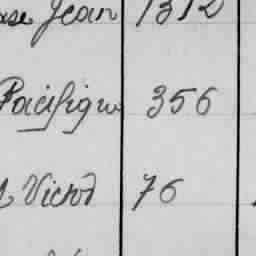 Jean 1312
Pacifique 356
Victor 76